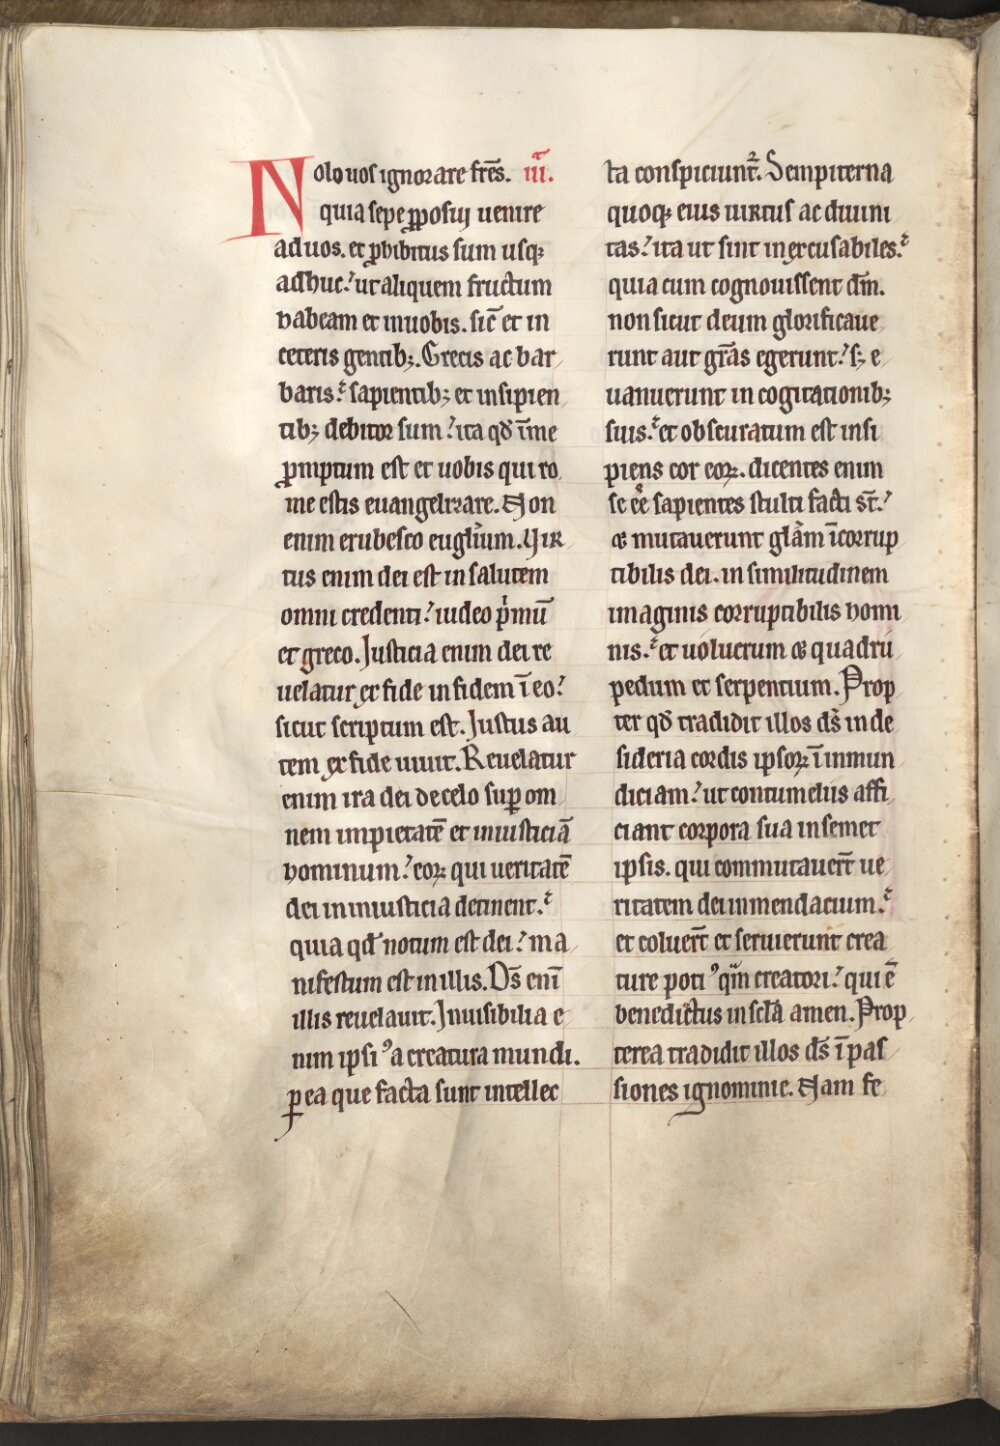 Nolo uos ignorare frēs. iii.
quia sepe ꝓposui uenire
ad uos. et ꝓhibitus sum usqꝫ
adhuc. ut aliquem fructum
habeam et in uobis. sic̄ et in
ceteris gentibꝫ. Grecis ac bar
baris. sapientibꝫ et insipien
tibꝫ debitor sum. ita qđ ī me
ꝓmptum est et uobis qui ro
me estis euangelizare. Non
enim erubesco eugłium. Uir
tus enim dei est in salutem
omni credenti. iudeo pⁱmū
et greco. Justicia enim dei re
uelatur ex fide in fidem ī eo.
sicut scriptum est. Justus au
tem ex fide uiuit. Reuelatur
enim ira dei de celo suꝑ om
nem impietatē et iniusticiā
hominum. eoꝝ qui ueritatē
dei in iniusticia detinent.
quia qđ notum est dei. ma
nifestum est in illis. Ds̄ enī
illis reuelauit. Inuisibilia e
nim ipsiꝰ a creatura mundi.
ꝑ ea que facta sunt intellec
ta conspiciunt᷑. Sempiterna
quoqꝫ eius uirtus ac diuini
tas. ita ut sint inexcusabiles.
quia cum cognouissent dm̄.
non sicut deum glorificaue
runt aut gr̄as egerunt. sꝫ e
uanuerunt in cogitationibꝫ
suis. et obscuratum est insi
piens cor eoꝝ. dicentes enim
se eē sapientes stulti facti st̄.
& mutauerunt glam̄ īcorrup
tibilis dei. in similitudinem
imaginis corruptibilis homi
nis. et uolucrum & quadru
pedum et serpentium. Prop
ter qđ tradidit illos ds̄ in de
sideria cordis ipsoꝝ ī inmun
diciam. ut contumeliis affi
ciant corpora sua in semet
ipsis. qui commutauer̄t ue
ritatem dei in mendacium.
et coluer̄t et seruierunt crea
ture potiꝰ qm̄ creatori. qui ē
benedictus in scl̄a amen. Prop
terea tradidit illos ds̄ ī pas
siones ignominie. Nam fe